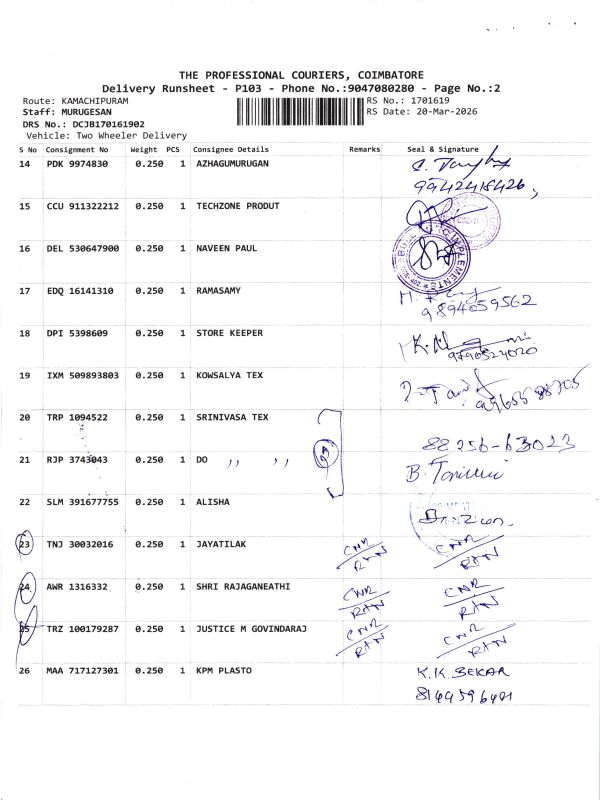 THE PROFESSIONAL COURIERS, COIMBATORE
Delivery Runsheet - P103 - Phone No.:9047080280 - Page No.:2
Route: KAMACHIPURAM
RS No.: 1701619
Staff: MURUGESAN
RS Date: 20-Mar-2026
DRS No.: DCJB170161902
Vehicle: Two Wheeler Delivery
S No Consignment No Weight PCS Consignee Details Remarks Seal & Signature
14 PDK 9974830 0.250 1 AZHAGUMURUGAN
9942418426,
15 CCU 911322212 0.250 1 TECHZONE PRODUT
16 DEL 530647900 0.250 1 NAVEEN PAUL
17 EDQ 16141310 0.250 1 RAMASAMY
9894059562
18 DPI 5398609 0.250 1 STORE KEEPER
9790524020
19 IXM 509893803 0.250 1 KOWSALYA TEX
20 TRP 1094522 0.250 1 SRINIVASA TEX
88256-63023
21 RJP 3743043 0.250 1 DO ,, ,,
22 SLM 391677755 0.250 1 ALISHA
23 TNJ 30032016 0.250 1 JAYATILAK CNR/RAN CNR/RAN
24 AWR 1316332 0.250 1 SHRI RAJAGANEATHI CNR/RAN CNR/RAN
25 TRZ 100179287 0.250 1 JUSTICE M GOVINDARAJ CNR/RAN CNR/RAN
26 MAA 717127301 0.250 1 KPM PLASTO K.K. SEKAR
8144596401